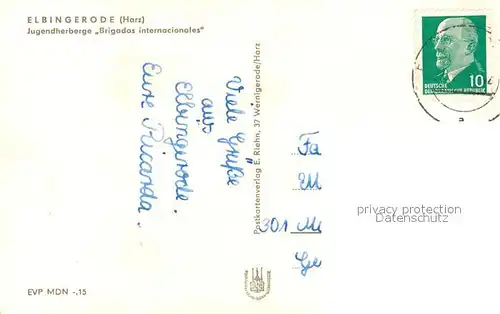 ELBINGERODE (Harz)
Jugendherberge „Brigadas internacionales"
Viele Grüße
aus
Elbingerode.
Eure Ricarda.
Postkartenverlag E. Riehn, 37 Wernigerode/Harz
EVP MDN -.15
10
DEUTSCHE
DEMOKRATISCHE REPUBLIK
Fa
M
301 Me
Ge
privacy protection
Datenschutz